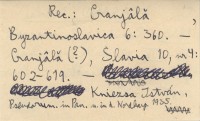 Rec.: Cranjălă,
Byzantinoslavica 6: 360. —
Cranjălă (?), Slavia 10, nr 4:
602-619. —
Kniezsa István,
Pseudorum. in Pan. u. in d. Nordkarp. 1935